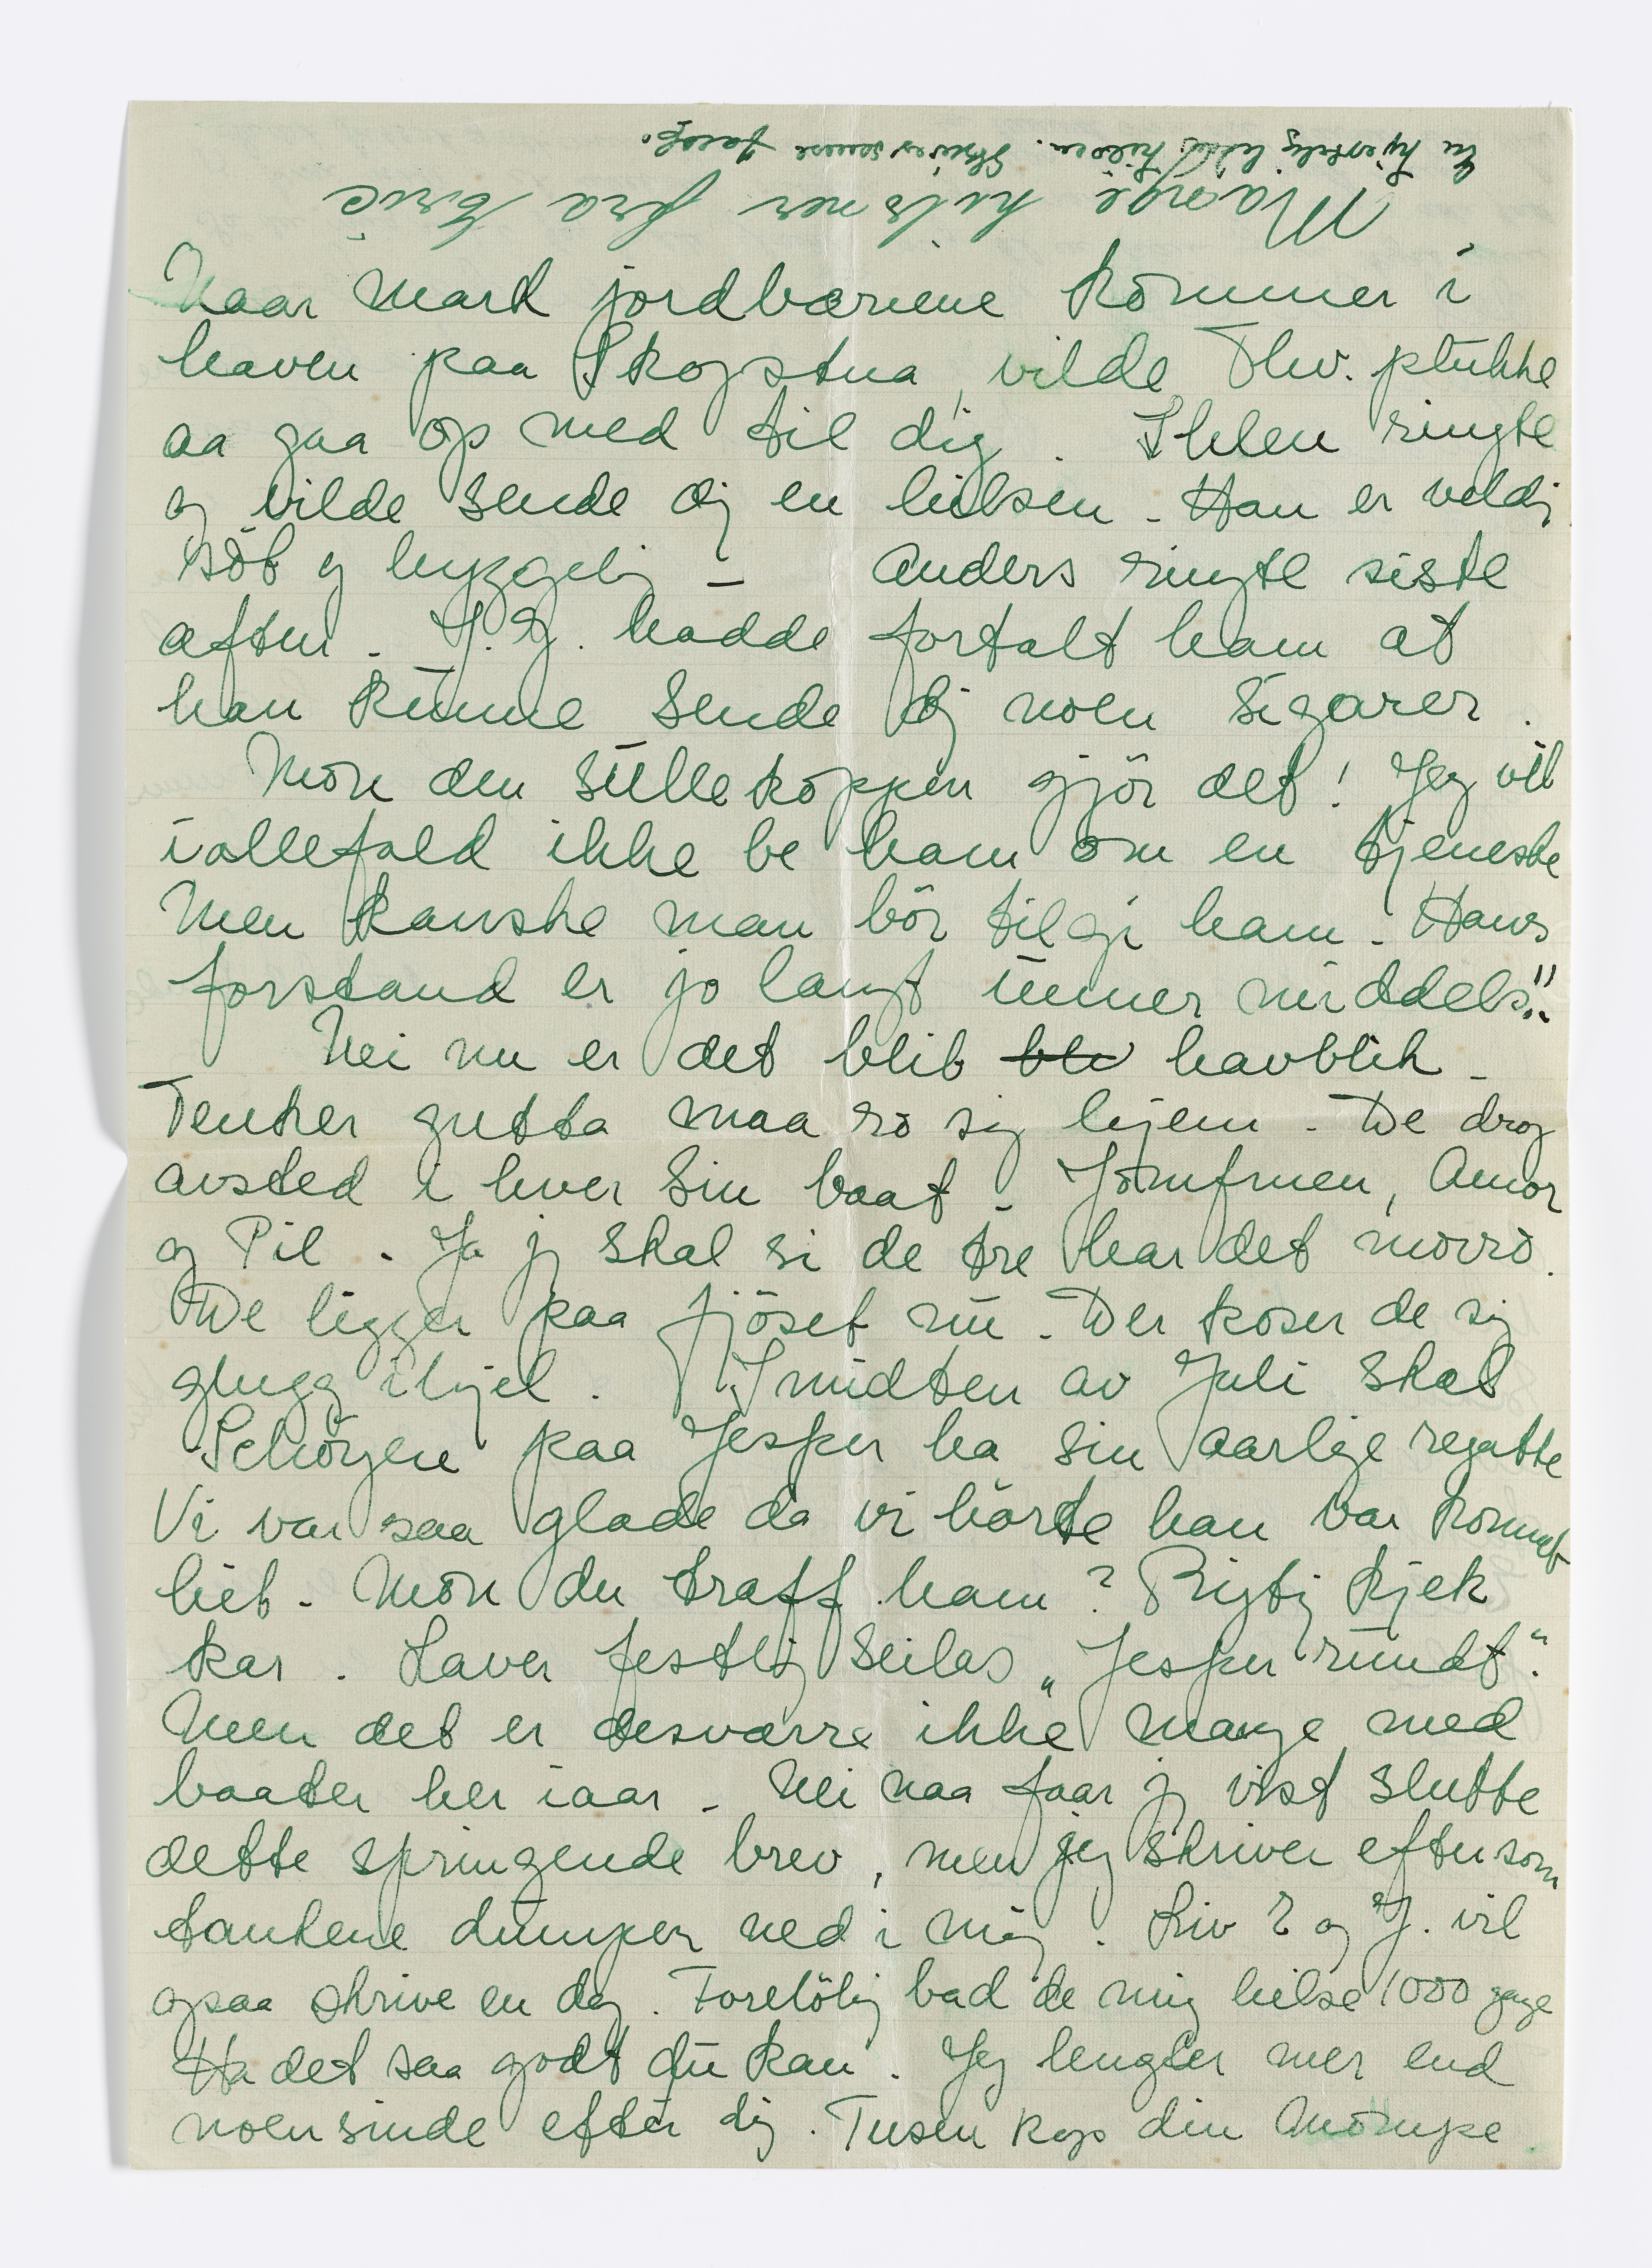 En hjertelig liten hilsen. Skriver senere Jacob.
Mange hilsner fra Eric
Naar mark jordbærene kommer i
haven paa Skogstua, vilde Thv. plukke
aa gaa op med til dig. Ihlen ringte
og vilde sende dig en hilsen - Han er veldig
söt og hyggelig - Anders ringte siste
aften - J. J. hadde fortalt ham at
han kunne sende dig noen sigarer.
Mon den sulle koppen gjör det! Jeg vil
iallefald ikke be ham om en tjeneste
Men kanske man bör tilgi ham - Hans
forstand er jo langt unner middels!!
Nei nu er det blit blv havblik -
Tenker gutta maa ro sig hjem - De drog
avsted i hver sin baat - Jomfruen, Amor
og Pil - Ja jeg skal si de tre har det morro.
De ligger paa fjöset nu - Der koser de sig
glugg ihjel. I midten av Juli skal
Schöyen paa Jesper ha sin aarlige regatte
Vi var saa glade da vi hörte han var kommet
hit - Mon du traff ham? Rigtig kjek
kar. Laver festlig seilas „Jesper rundt".
Men det er desværre ikke mange med
baater her iaar - Nei naa faar jeg vist slutte
dette springende brev, men jeg skriver eftersom
tankene dumper ned i mig. Liv E og J. vil
ogsaa skrive en dag. Forelöbig bad de mig hilse 1000 gange
Ha det saa godt du kan. Jeg lengter mer end
noensinde efter dig. Tusen kys din